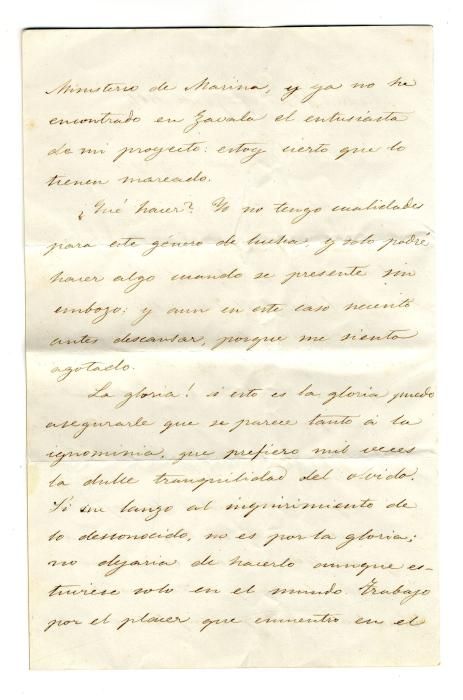 Ministerio de Marina, y ya no he
encontrado en Zavala el entusiasta
de mi proyecto: estoy cierto que lo
tienen mareado.
¿Qué hacer? Yo no tengo cualidades
para este género de lucha, y solo podré
hacer algo cuando se presente sin
embozo; y aun en este caso necesito
antes descansar, porque me siento
agotado.
La gloria! si esto es la gloria puedo
asegurarle que se parece tanto á la
ignominia, que prefiero mil veces
la dulce tranquilidad del olvido.
Si me lanzo al inquirimiento de
lo desconocido, no es por la gloria;
no dejaria de hacerlo aunque es-
tuviese solo en el mundo. Trabajo
por el placer que encuentro en el